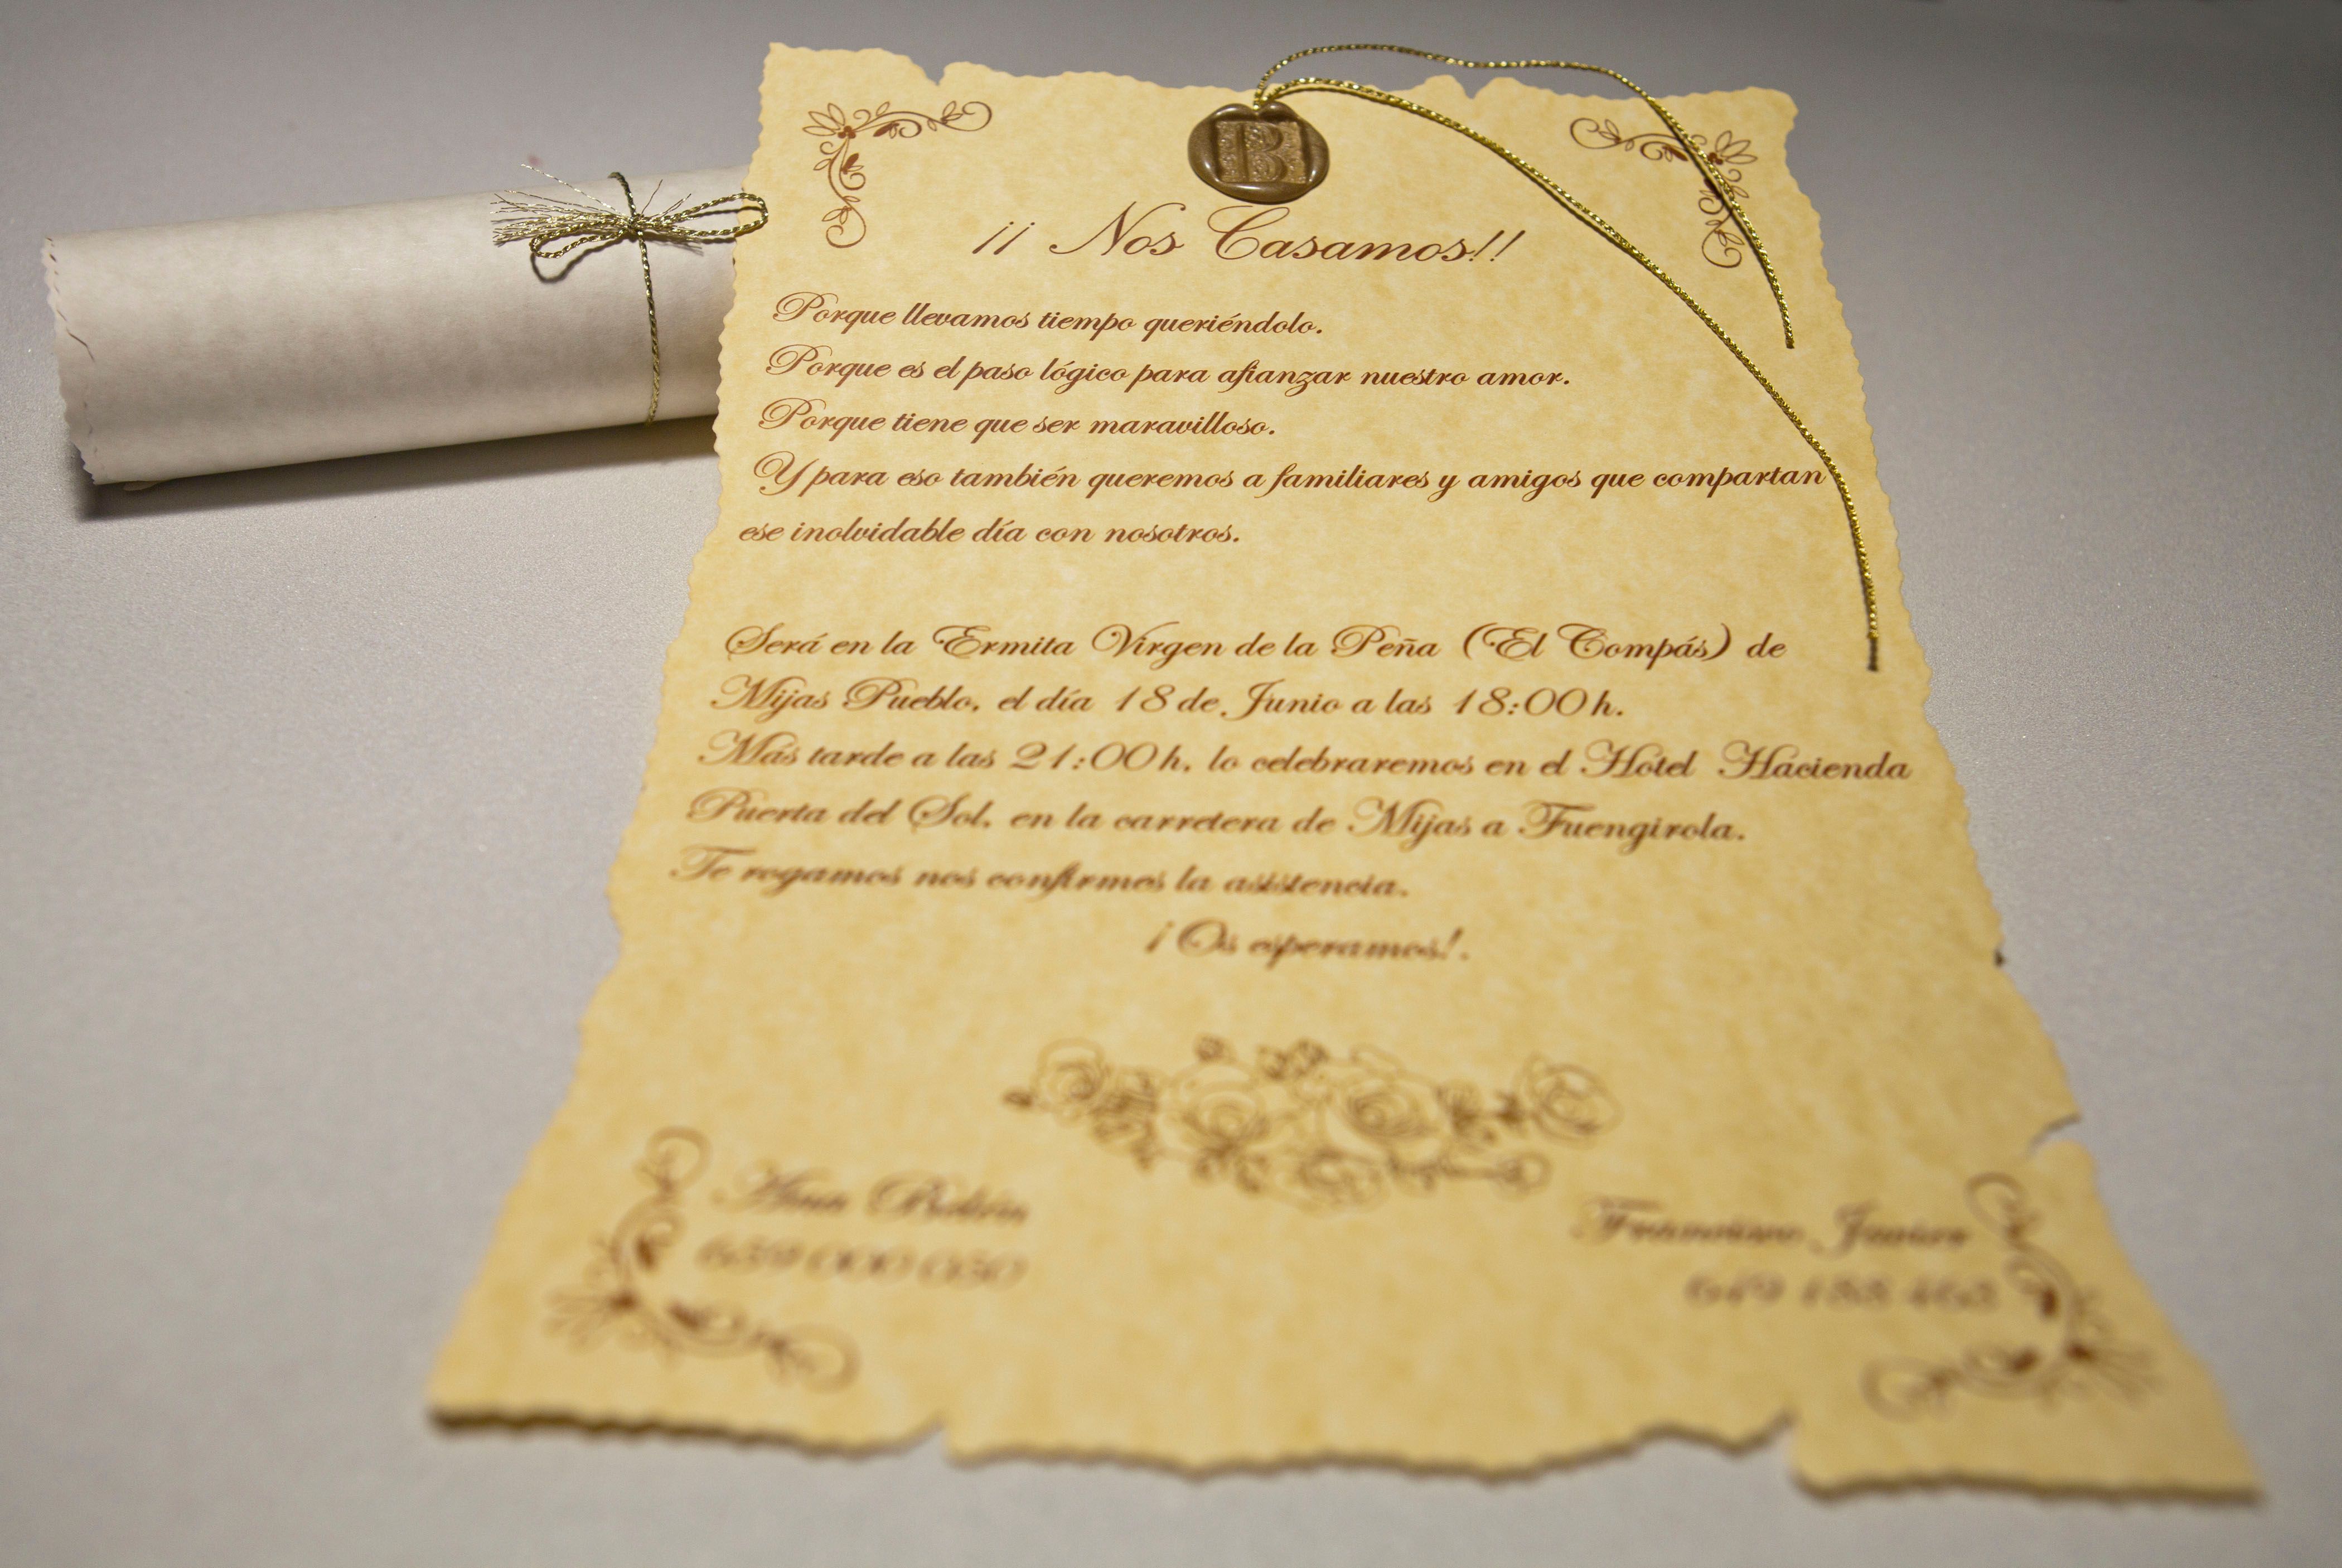 B
¡¡ Nos Casamos!!
Porque llevamos tiempo queriéndolo.
Porque es el paso lógico para afianzar nuestro amor.
Porque tiene que ser maravilloso.
Y para eso también queremos a familiares y amigos que compartan
ese inolvidable día con nosotros.
Será en la Ermita Virgen de la Peña (El Compás) de
Mijas Pueblo, el día 18 de Junio a las 18:00 h.
Más tarde a las 21:00 h, lo celebraremos en el Hotel Hacienda
Puerta del Sol, en la carretera de Mijas a Fuengirola.
Te rogamos nos confirmes la asistencia.
¡Os esperamos!.